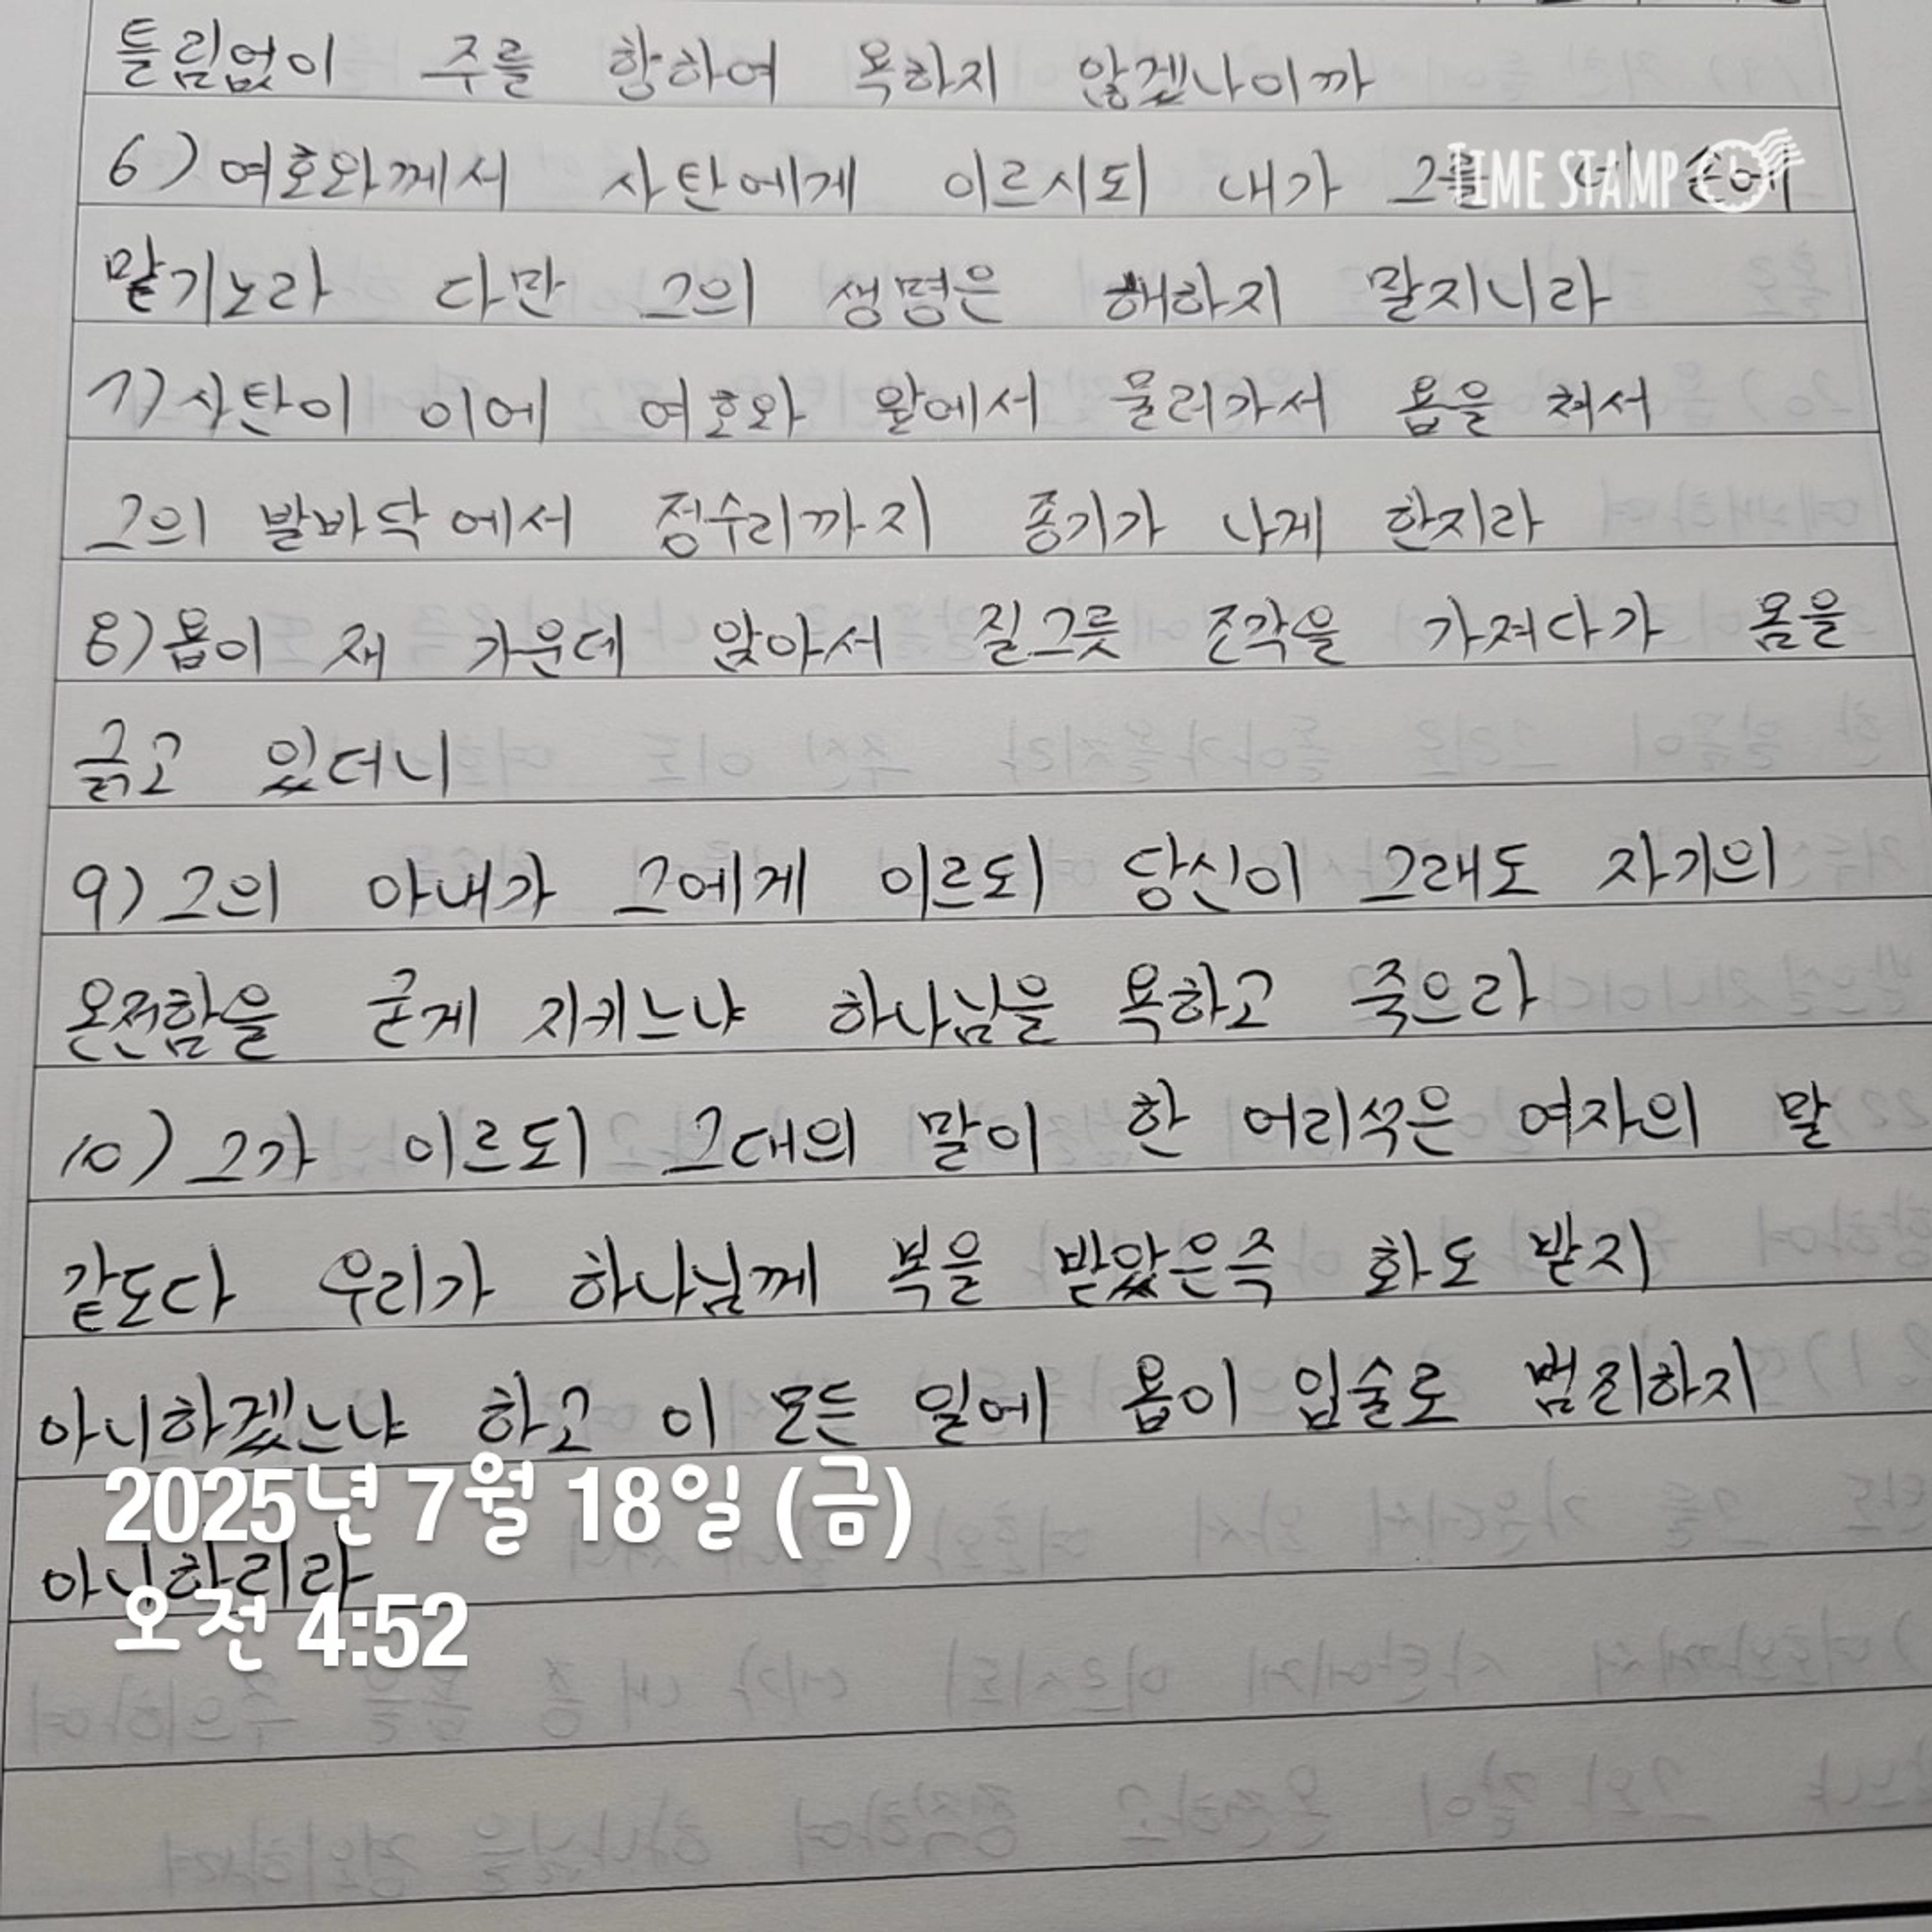 틀림없이 주를 향하여 욕하지 않겠나이까
6) 여호와께서 사탄에게 이르시되 내가 그를 손에
TIME STAMP
맡기노라 다만 그의 생명은 해하지 말지니라
7) 사탄이 이에 여호와 앞에서 물러가서 욥을 쳐서
그의 발바닥에서 정수리까지 종기가 나게 한지라
8) 욥이 재 가운데 앉아서 질그릇 조각을 가져다가 몸을
긁고 있더니
9) 그의 아내가 그에게 이르되 당신이 그래도 자기의
온전함을 굳게 지키느냐 하나님을 욕하고 죽으라
10) 그가 이르되 그대의 말이 한 어리석은 여자의 말
같도다 우리가 하나님께 복을 받았은즉 화도 받지
아니하겠느냐 하고 이 모든 일에 욥이 입술로 범죄하지
2025년 7월 18일 (금)
아니하리라
오전 4:52